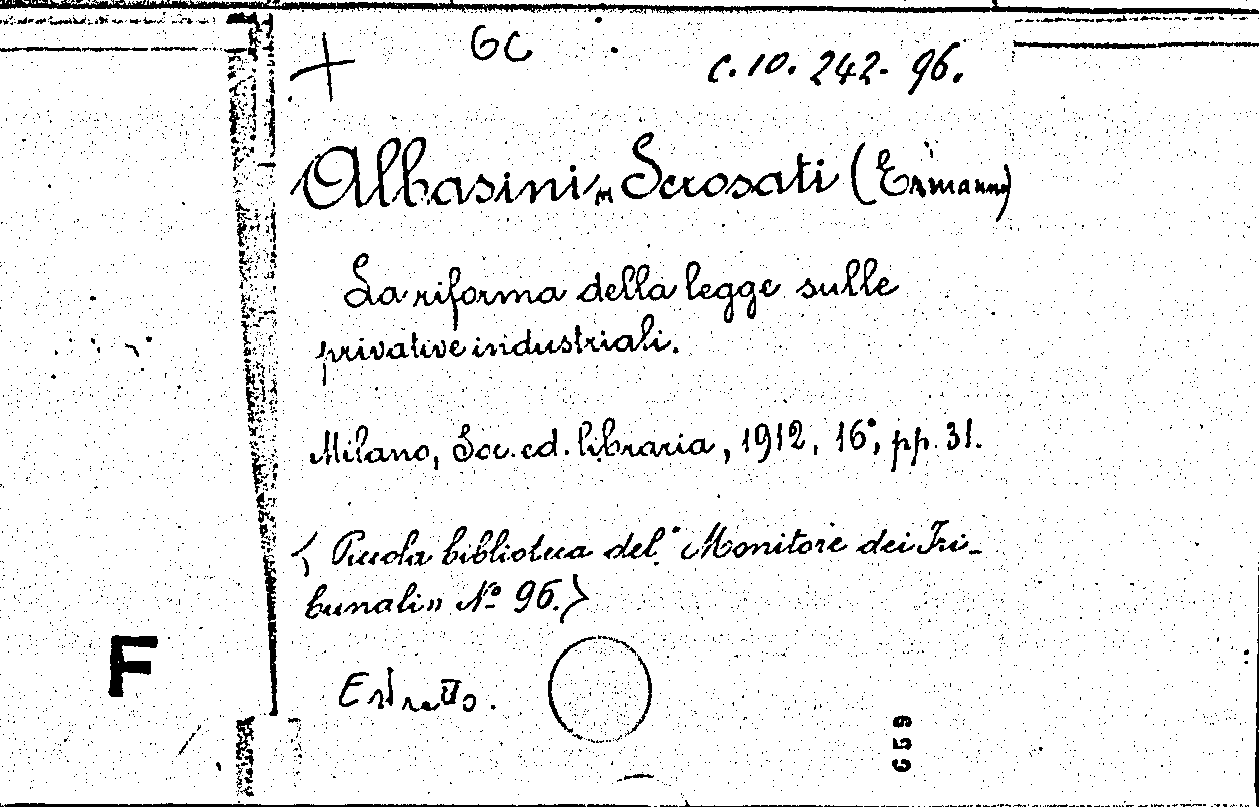 + GC
C. 10. 242. 96.
Albasini Scrosati (Ermanno)
La riforma della legge sulle
privative industriali.
Milano, Soc. ed. libraria, 1912, 16°, pp. 31.
< Piccola biblioteca del "Monitore dei Tri-
bunali" N° 96.>
Estratto.
F
659